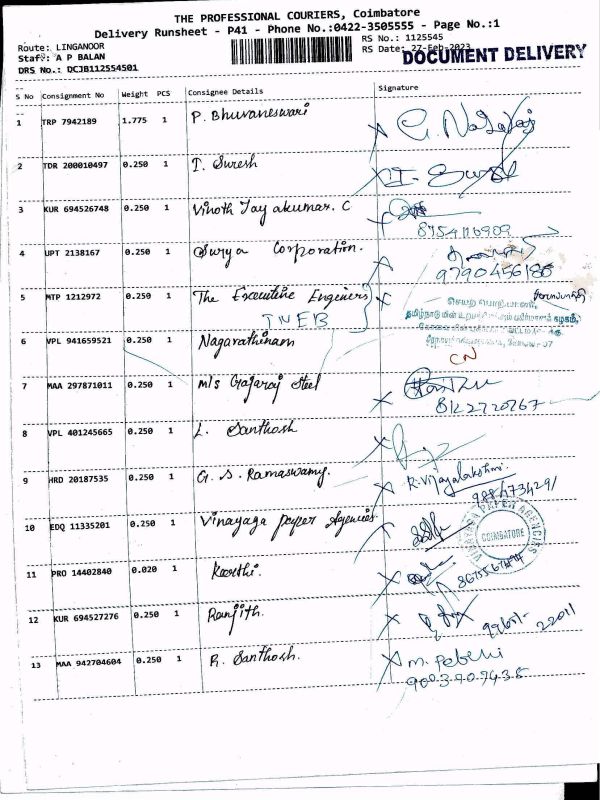 THE PROFESSIONAL COURIERS, Coimbatore
Delivery Runsheet - P41 - Phone No.:0422-3505555 - Page No.:1
Route: LINGANOOR
RS No.: 1125545
Staff: A P BALAN
RS Date: 27-Feb-2023
DOCUMENT DELIVERY
DRS No.: DCJB112554501
S No Consignment No Weight PCS Consignee Details Signature
1 TRP 7942189 1.775 1 P. Bhuvaneswari G. Nagaraj
2 TDR 200010497 0.250 1 I. Suresh I. Suresh
3 KUR 694526748 0.250 1 Vinoth Jayakumar. C
8754116909
4 UPT 2138167 0.250 1 Surya Corporation.
9790456186
5 MTP 1212972 0.250 1 The Executive Engineers
TNEB
6 VPL 941659521 0.250 1 Nagarathinam
CN
7 MAA 297871011 0.250 1 M/s Gajaraj Steel
8122720767
8 VPL 401245665 0.250 1 L. Santhosh
9 HRD 20187535 0.250 1 G. S. Ramaswamy. R. Vijayalakshmi
10 EDQ 11335201 0.250 1 Vinayaga paper Agencies
VINAYAGA PAPER AGENCIES
COIMBATORE
11 PRO 14402840 0.020 1 Keerthi.
12 KUR 694527276 0.250 1 Ranjith.
22011
13 MAA 942704604 0.250 1 R. Santhosh.
9003909435